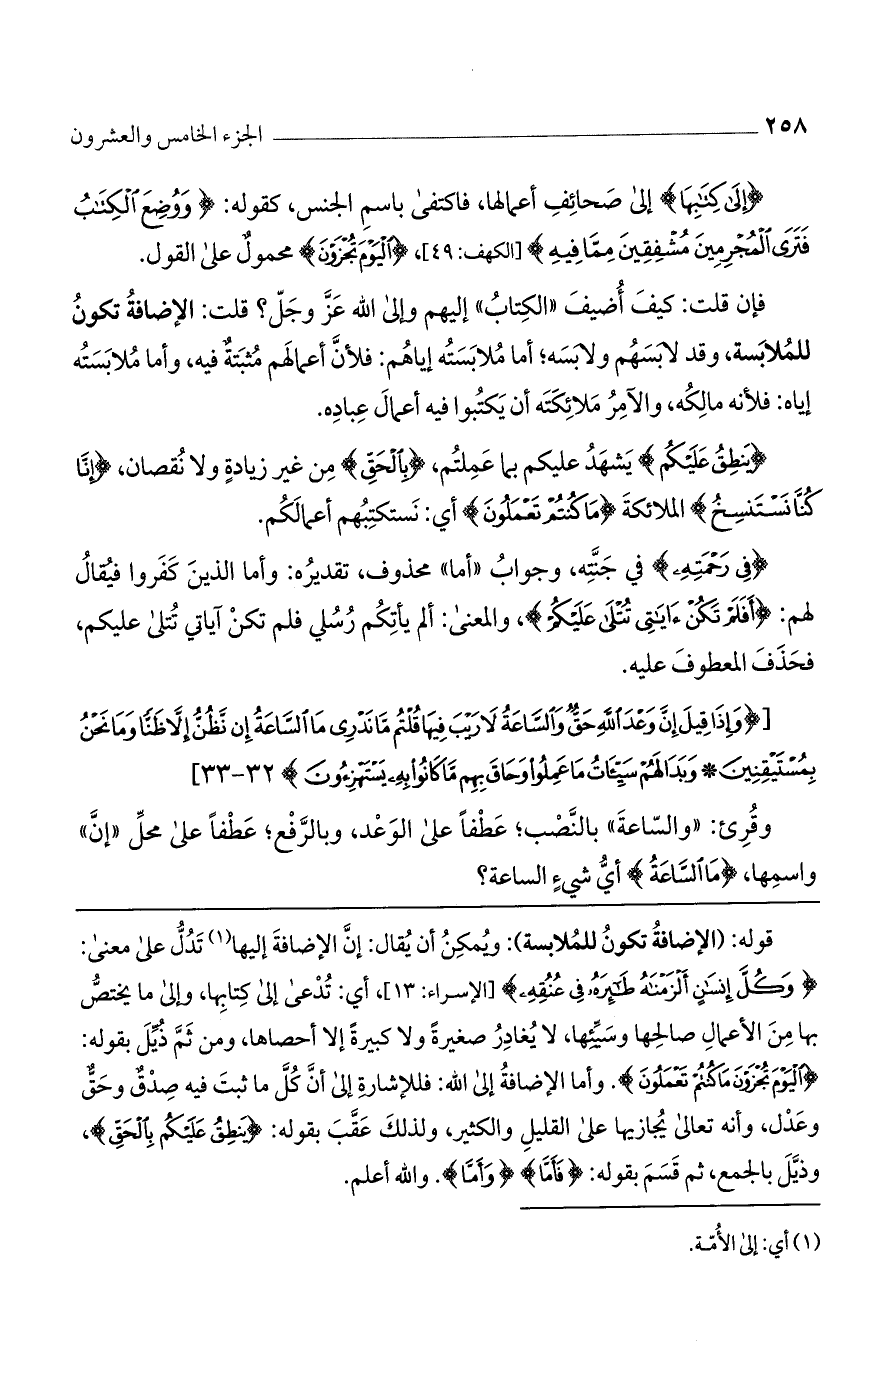 ٢٥٨ ــــــــــــــــــــــــــــــــ الجزء الخامس والعشرون
﴿إِلَىٰ كِتَٰبِهَا﴾ إلىٰ صَحائِفِ أعمالها، فاكتفىٰ باسمِ الجنس، كقوله: ﴿وَوُضِعَ ٱلْكِتَٰبُ
فَتَرَى ٱلْمُجْرِمِينَ مُشْفِقِينَ مِمَّا فِيهِ﴾ [الكهف: ٤٩]، ﴿ٱلْيَوْمَ تُجْزَوْنَ﴾ محمولٌ علىٰ القول.
فإن قلت: كيفَ أُضيفَ «الكِتابُ» إليهم وإلىٰ الله عَزَّ وجَلّ؟ قلت: الإضافةُ تكونُ
للمُلابَسة، وقد لابَسَهُم ولابَسَه؛ أما مُلابَسَتُه إياهُم: فلأنَّ أعمالَهم مُثبَتةٌ فيه، وأما مُلابَسَتُه
إياه: فلأنه مالِكُه، والآمِرُ مَلائِكَتَه أن يَكتُبوا فيه أعمالَ عِبادِه.
﴿يَنطِقُ عَلَيْكُم﴾ يَشهَدُ عليكم بما عَمِلتُم، ﴿بِٱلْحَقِّ﴾ مِن غير زيادةٍ ولا نُقصان، ﴿إِنَّا
كُنَّا نَسْتَنسِخُ﴾ الملائكةَ ﴿مَا كُنتُمْ تَعْمَلُونَ﴾ أي: نَستكتِبُهم أعمالَكُم.
﴿فِى رَحْمَتِهِۦ﴾ في جَنَّتِه، وجوابُ «أما» محذوف، تقديرُه: وأما الذينَ كَفَروا فيُقالُ
لهم: ﴿أَفَلَمْ تَكُنْ ءَايَٰتِى تُتْلَىٰ عَلَيْكُمْ﴾، والمعنىٰ: ألم يأتِكُم رُسُلي فلم تكنْ آياتي تُتلىٰ عليكم،
فحَذَفَ المعطوفَ عليه.
[﴿وَإِذَا قِيلَ إِنَّ وَعْدَ ٱللَّهِ حَقٌّ وَٱلسَّاعَةُ لَا رَيْبَ فِيهَا قُلْتُم مَّا نَدْرِى مَا ٱلسَّاعَةُ إِن نَّظُنُّ إِلَّا ظَنًّا وَمَا نَحْنُ
بِمُسْتَيْقِنِينَ * وَبَدَا لَهُمْ سَيِّـَٔاتُ مَا عَمِلُوا۟ وَحَاقَ بِهِم مَّا كَانُوا۟ بِهِۦ يَسْتَهْزِءُونَ﴾ ٣٢-٣٣]
وقُرِئ: «والسّاعةَ» بالنَّصْب؛ عَطْفاً علىٰ الوَعْد، وبالرَّفْع؛ عَطْفاً علىٰ محلِّ «إنَّ»
واسمِها، ﴿مَا ٱلسَّاعَةُ﴾ أيُّ شيءٍ الساعة؟
قوله: (الإضافةُ تكونُ للمُلابسة): ويُمكِنُ أن يُقال: إنَّ الإضافةَ إليها(١) تَدُلُّ علىٰ معنىٰ:
﴿وَكُلَّ إِنسَٰنٍ أَلْزَمْنَٰهُ طَٰٓئِرَهُۥ فِى عُنُقِهِۦ﴾ [الإسراء: ١٣]، أي: تُدْعىٰ إلىٰ كِتابِها، وإلىٰ ما يختصُّ
بها مِنَ الأعمالِ صالحِها وسَيِّئِها، لا يُغادِرُ صغيرةً ولا كبيرةً إلا أحصاها، ومن ثَمَّ ذُيِّلَ بقوله:
﴿ٱلْيَوْمَ تُجْزَوْنَ مَا كُنتُمْ تَعْمَلُونَ﴾. وأما الإضافةُ إلىٰ الله: فللإشارةِ إلىٰ أنَّ كُلَّ ما ثبتَ فيه صِدْقٌ وحَقٌّ
وعَدْل، وأنه تعالىٰ يُجازيها علىٰ القليلِ والكثير، ولذلكَ عَقَّبَ بقوله: ﴿يَنطِقُ عَلَيْكُم بِٱلْحَقِّ﴾،
وذيَّلَ بالجمع، ثم قَسَمَ بقوله: ﴿فَأَمَّا﴾ ﴿وَأَمَّا﴾. والله أعلم.
(١) أي: إلىٰ الأُمّة.